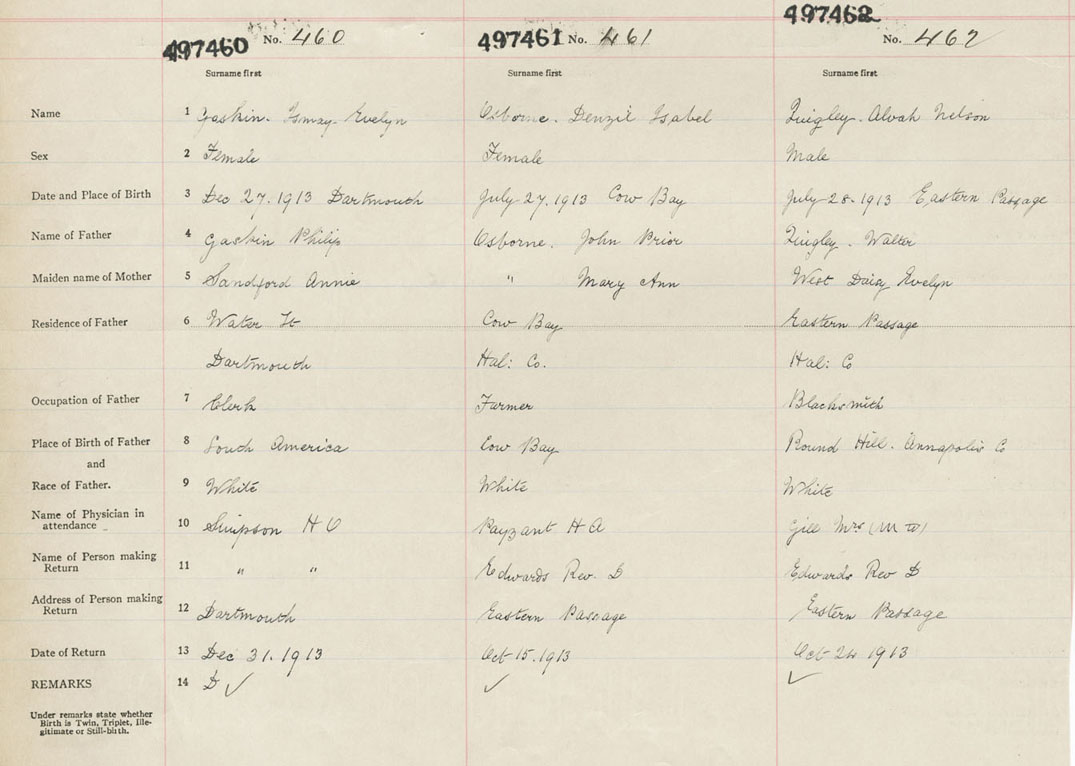 497462
497460 No. 460 497461 No. 461 No. 462
Surname first Surname first Surname first
Name 1 Gaskin. Ismay Evelyn Osborne. Denzil Isabel Quigley. Alvah Nelson
Sex 2 Female Female Male
Date and Place of Birth 3 Dec 27. 1913 Dartmouth July 27. 1913 Cow Bay July 28. 1913 Eastern Passage
Name of Father 4 Gaskin Philip Osborne. John Prior Quigley. Walter
Maiden name of Mother 5 Sandford Annie " Mary Ann West Daisy Evelyn
Residence of Father 6 Water St Cow Bay Eastern Passage
Dartmouth Hal: Co. Hal: Co
Occupation of Father 7 Clerk Farmer Blacksmith
Place of Birth of Father 8 South America Cow Bay Round Hill. Annapolis Co
and
Race of Father. 9 White White White
Name of Physician in
attendance 10 Simpson H O Payzant H A Gill Mrs (M W)
Name of Person making
Return 11 " " Edwards Rev. D Edwards Rev D
Address of Person making
Return 12 Dartmouth Eastern Passage Eastern Passage
Date of Return 13 Dec 31. 1913 Oct 15. 1913 Oct 1913
REMARKS 14 D ✓ ✓ ✓
Under remarks state whether
Birth is Twin, Triplet, Ille-
gitimate or Still-birth.